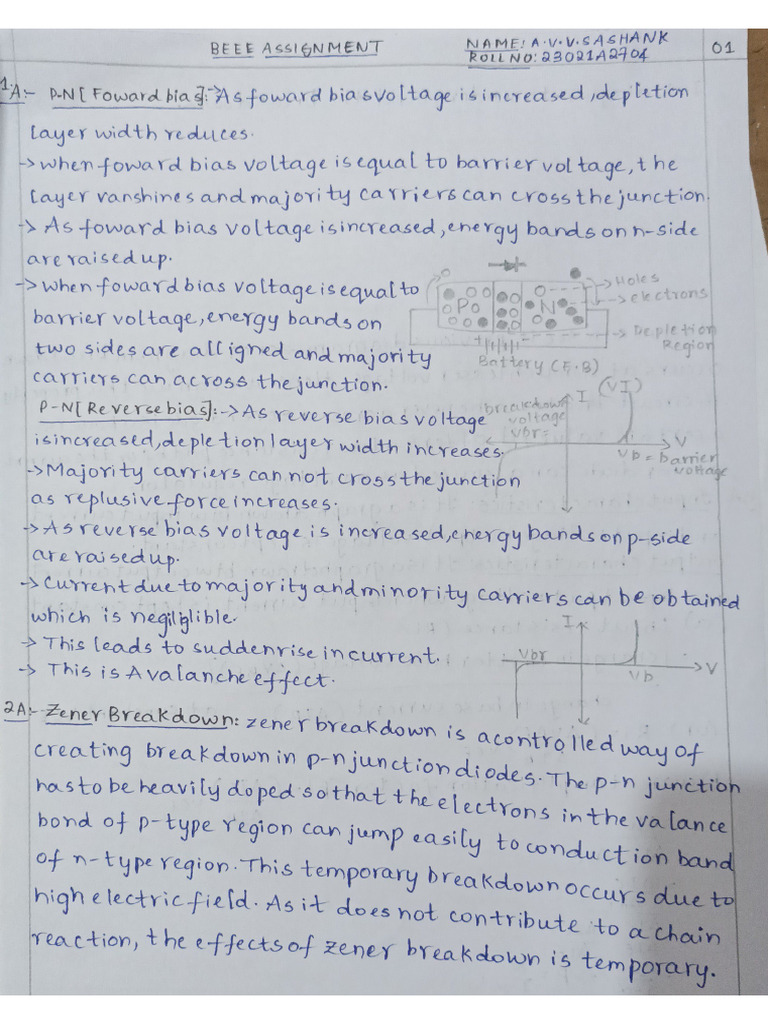 BEEE ASSIGNMENT
NAME: A.V.V.SASHANK
ROLL NO: 23021A2704
01
1.A:- P-N[Foward bias]:-> As foward bias voltage is increased, depletion
layer width reduces.
-> when foward bias voltage is equal to barrier voltage, the
layer vanshines and majority carriers can cross the junction.
-> As foward bias voltage is increased, energy bands on n-side
are raised up.
-> when foward bias voltage is equal to
barrier voltage, energy bands on
two sides are alligned and majority
carriers can across the junction.
P
N
Holes
electrons
Depletion
Region
+ -
Battery (F.B)
P-N[Reverse bias]:-> As reverse bias voltage
is increased, depletion layer width increases.
-> Majority carriers can not cross the junction
as replusive force increases.
breakdown
voltage
Vbr=
I
(VI)
V
Vb = barrier
voltage
-> As reverse bias voltage is increased, energy bands on p-side
are raised up.
-> Current due to majority and minority carriers can be obtained
which is neglible.
-> This leads to sudden rise in current.
-> This is Avalanche effect.
I
Vbr
V
Vb
2A:- Zener Breakdown: zener breakdown is a controlled way of
creating breakdown in p-n junction diodes. The p-n junction
has to be heavily doped so that the electrons in the valance
bond of p-type region can jump easily to conduction band
of n-type region. This temporary breakdown occurs due to
high electric field. As it does not contribute to a chain
reaction, the effects of zener breakdown is temporary.